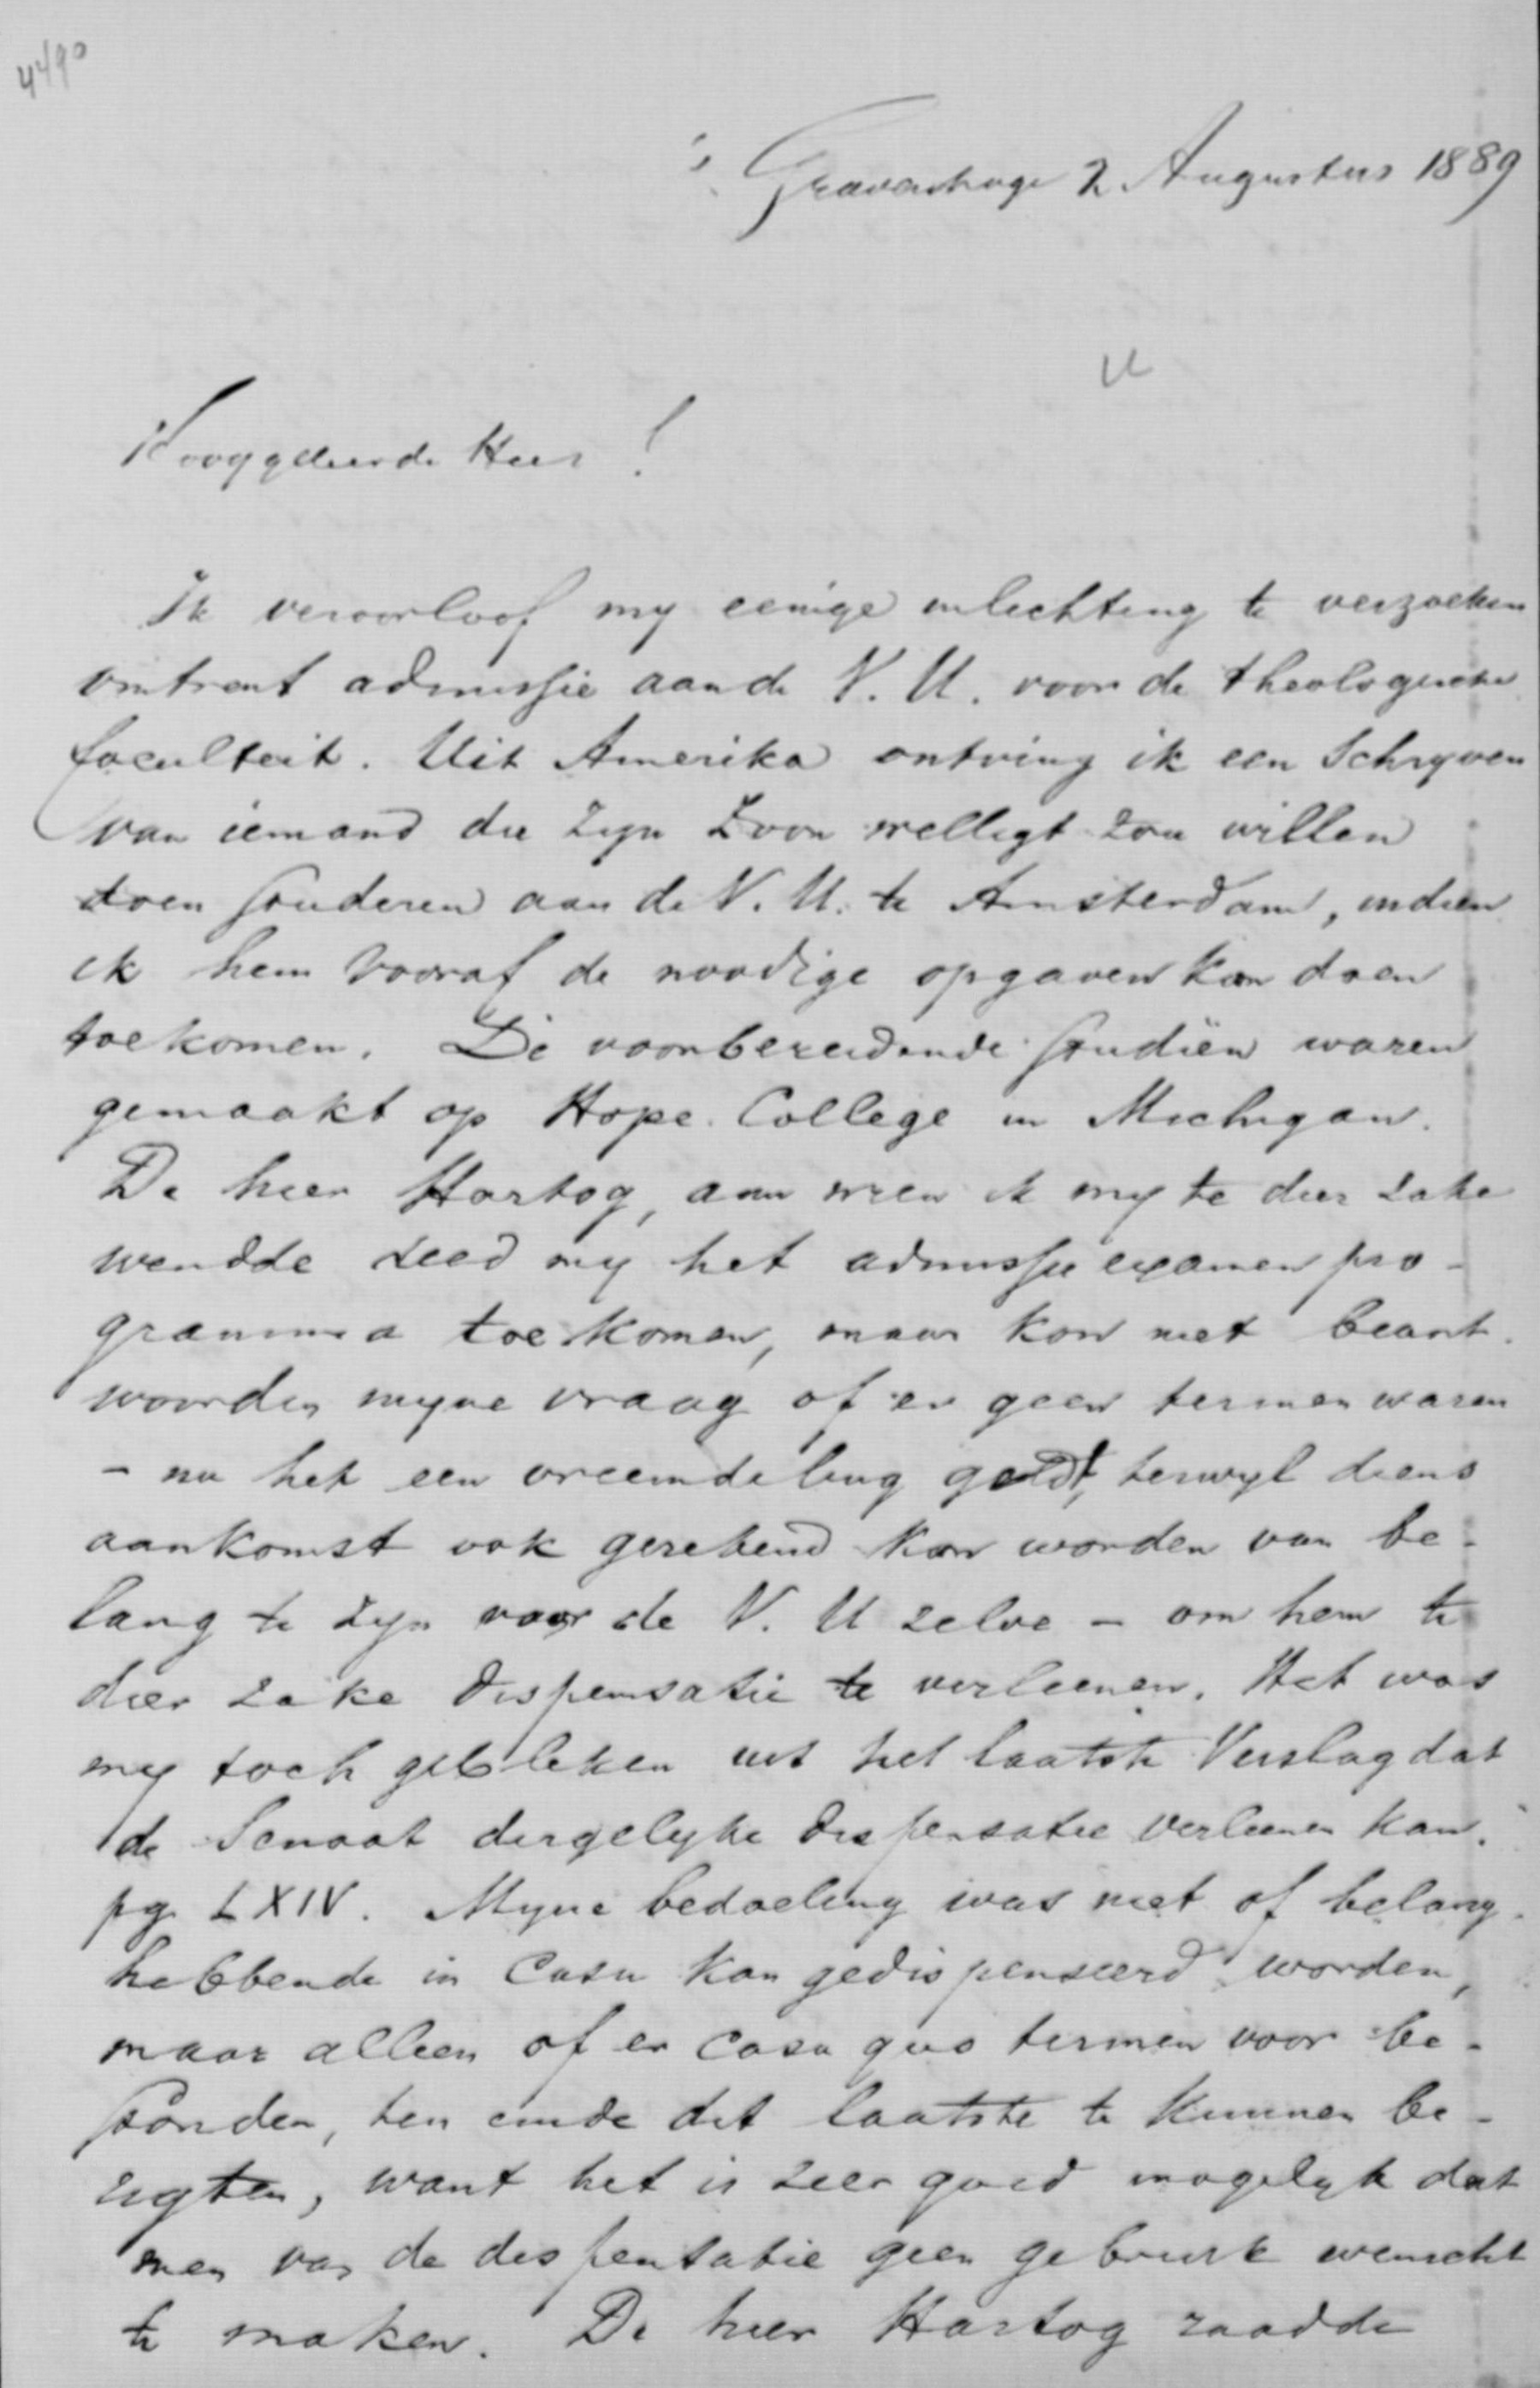 4490
's Gravenhage 2 Augustus 1889
U
Hooggeleerde Heer!
Ik veroorloof my eenige inlichting te verzoeken
omtrent admissie aan de V. U. voor de theologische
faculteit. Uit Amerika ontving ik een Schryven
van iemand die zyn Zoon welligt zou willen
doen studeren aan de V. U. te Amsterdam, indien
ik hem vooraf de noodige opgaven kan doen
toekomen. De voorbereidende studiën waren
gemaakt op Hope College in Michigan.
De heer Hartog, aan wien ik my te dier zake
wendde deed my het admissie examen pro-
gramma toekomen, maar kon niet beant-
woorden myne vraag of er geen termen waren
- nu het een vreemdeling geldt, terwyl diens
aankomst ook gerekend kan worden van be-
lang te zyn voor de V. U zelve - om hem te
dier zake dispensatie te verleenen. Het was
my toch gebleken uit het laatste Verslag dat
de Senaat dergelyke dispensatie verleenen kan.
pg. LXIV. Myne bedoeling was niet of belang-
hebbende in Casu kan gedispenseerd worden,
maar alleen of er casu quo termen voor be-
stonden, ten einde dit laatste te kunnen be-
rigten, want het is zeer goed mogelyk dat
men van de dispensatie geen gebruik wenscht
te maken. De heer Hartog raadde